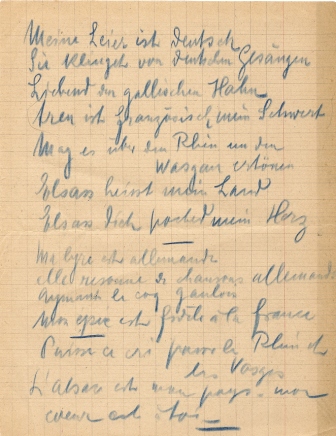 Meine Leier ist deutsch
Sie klinget von deutschen Gesängen
Liebend den gallischen Hahn
treu ist französisch mein Schwert
Mag es über den Rhein un den
Wasgau ertönen
Elsass heisst mein Land
Elsass dich poched mein Herz
Ma lyre est allemande
elle resonne de chansons allemande
aymant le coq gaulois
Mon epee est fidèle à la france
Puisse ce cri passer le Rhin et
les Vosges
L'alsace est mon pays - mon
coeur est à toi